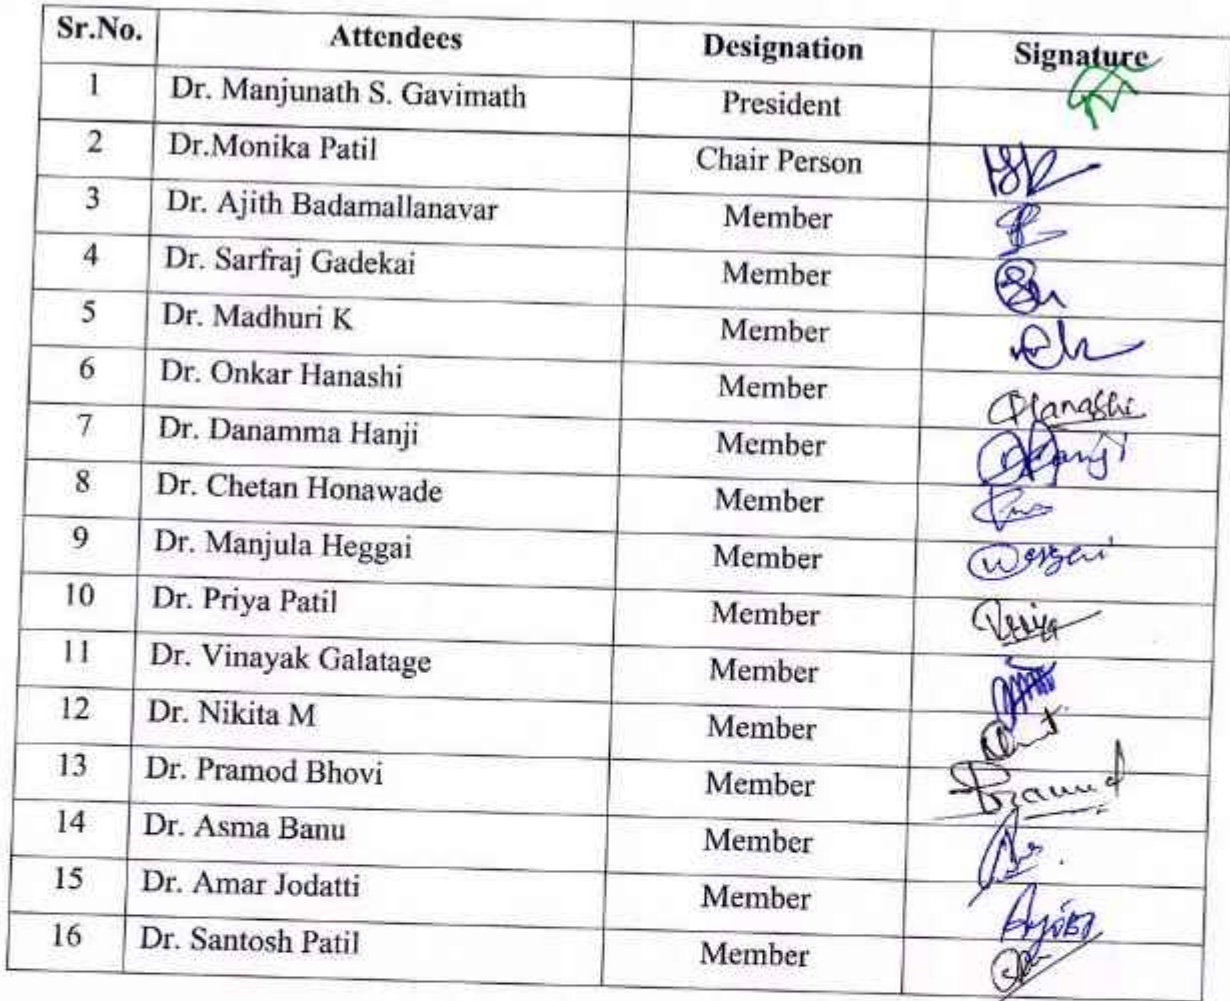 Sr.No. Attendees Designation Signature
1 Dr. Manjunath S. Gavimath President
2 Dr.Monika Patil Chair Person
3 Dr. Ajith Badamallanavar Member
4 Dr. Sarfraj Gadekai Member
5 Dr. Madhuri K Member
6 Dr. Onkar Hanashi Member Hanashi
7 Dr. Danamma Hanji Member
8 Dr. Chetan Honawade Member
9 Dr. Manjula Heggai Member
10 Dr. Priya Patil Member Priya
11 Dr. Vinayak Galatage Member
12 Dr. Nikita M Member
13 Dr. Pramod Bhovi Member Pramod
14 Dr. Asma Banu Member
15 Dr. Amar Jodatti Member
16 Dr. Santosh Patil Member